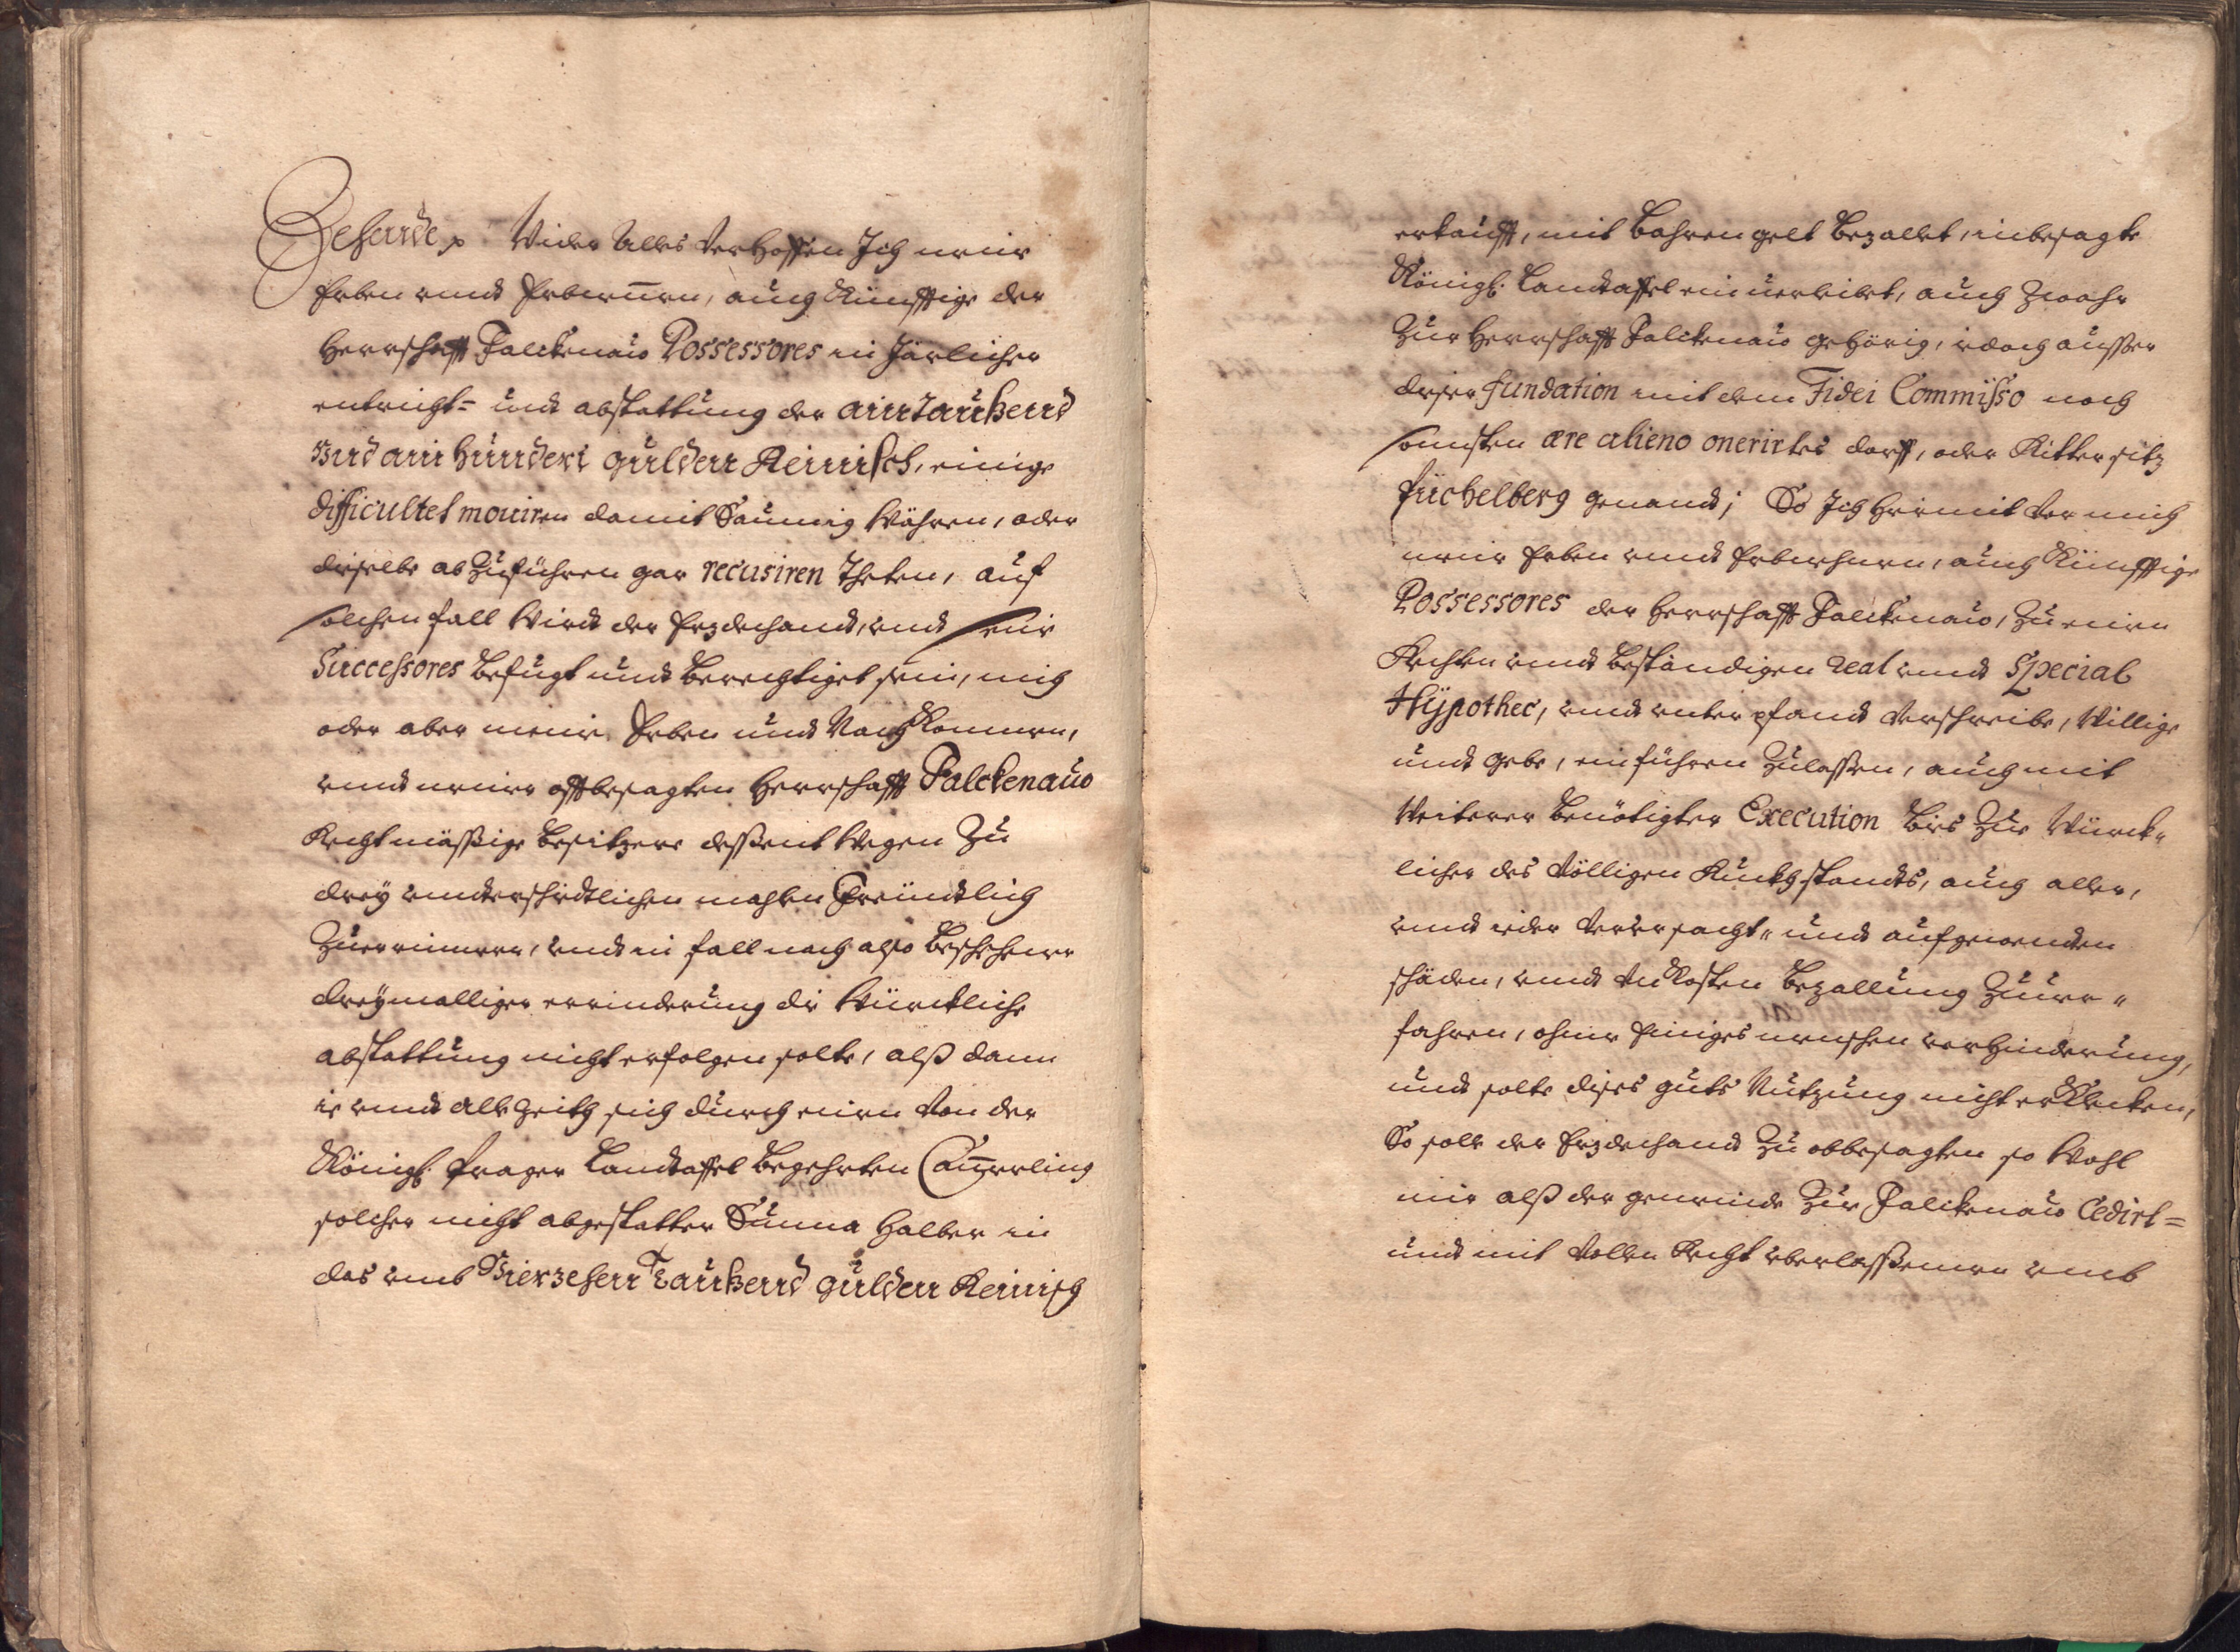 Zehende, Wider Alles Verhoffen Ich meine
Erben vnndt Erbennen, auch Künfftige der
Herrschafft Falckenaw Possessores in Järlicher
entricht= undt abstattung der ain Taußend
Vnd ain hundert gulden Reinisch, einige
difficultet mouiren damit Saumig Währen, oder
dieselbe abZuführen gar recusiren theten, auf
solchen fall Wirdt der Erzdechandt, vndt seine
Successores befugt undt berechtiget sein, mich
oder aber meine Erben undt NachKommen,
vnndt meiner offtbesagten Herrschafft Falckenaw
Rechtmässige besitzere dessentWegen Zu
dreÿ vnderschidtlichen mahlen Freündtlich
Zuerrinnern, vndt in fall nach also beschehener
dreÿmalliger errinderung die Würckliche
abstattung nicht erfolgen solte, alß dann
ie vnndt allzeith sich durch einen Von der
Königl. Prager Landtaffel begehrten Cammerling
solcher nicht abgestatter Summa halber in
das vmb Vierzehen Taußend gulden Reinisch
erkaufft, mit bahren gelt bezallet, inbesagte
Königl. Landtaffel einuerleibet, auch Zwahr
Zur Herrschafft Falckenaw gehörig, iedoch ausser
dieser fundation mit dem Fidei Commisso noch
sonnsten ære alieno onerirtes dorff, oder Rittersitz
Püchelberg genandt; So Ich hiermit Vor mich
meine Erben vnndt Erbnehmen, auch Künfftige
Possessores der Herrschafft Falckenaw, Zu einen
Rechten vnndt beständigen real vnndt Special
Hÿpothec, vnndt vnterpfandt Verschreibe, Willige
undt gebe, einführen Zulassen, auch mit
Weiterer benötigter Execution bis Zur Würck=
licher des Völligen Ruckhstandts, auch aller,
vnndt ieder Verursacht= undt aufgewenden
schäden, vnndt VnKosten bezallung Zuuer=
fahren, ohne Einiges menschen verhinderung,
undt solte dises guts Nutzung nicht erKlecken,
So solle der Erzdechandt Zu obbesagten so Wohl
mir alß der gemeinde Zur Falckenaw Cedirt=
undt mit Vollen Recht vberlassenen vmb